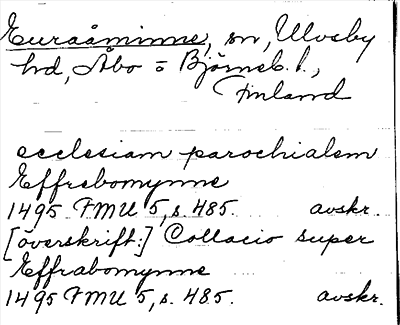 Euraåminne, sn, Ulvsby
hd, Åbo = Björneb. l.,
Finland
ecclesiam parochialem
Effrebomynne
1495 FMU 5, s. 485. avskr.
[överskrift:] Collacio super
Effrabomynne
1495 FMU 5, s. 485. avskr.